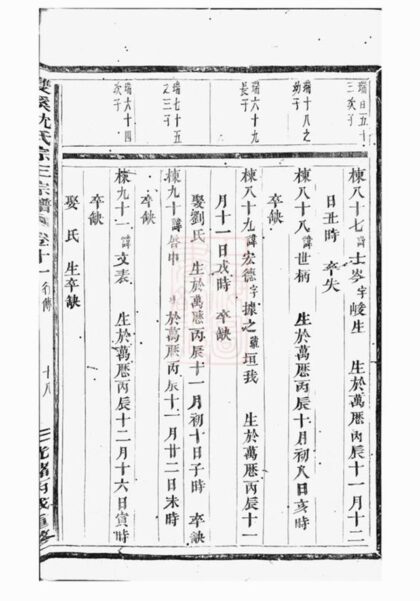 瑞百五十
三次子
瑞十八之
幼子
瑞六十九
長子
瑞七十五
之三子
瑞六十四
次子
棟八十七諱士岑字峻生　生於萬曆丙辰十一月十二
日丑時　卒失
棟八十八諱世柄　生於萬曆丙辰十月初八日亥時
卒缺
棟八十九諱宏德字據之號垣我　生於萬曆丙辰十一
月十一日戌時　卒缺
娶劉氏　生於萬曆丙辰十一月初十日子時　卒缺
棟九十諱啓申　生於萬曆丙辰十一月廿二日未時
卒缺
棟九十一諱文表　生於萬曆丙辰十二月十六日寅時
卒缺
娶氏　生卒缺
雙溪沈氏宗譜　卷十一　行傳　十八　光緒丙戌重修